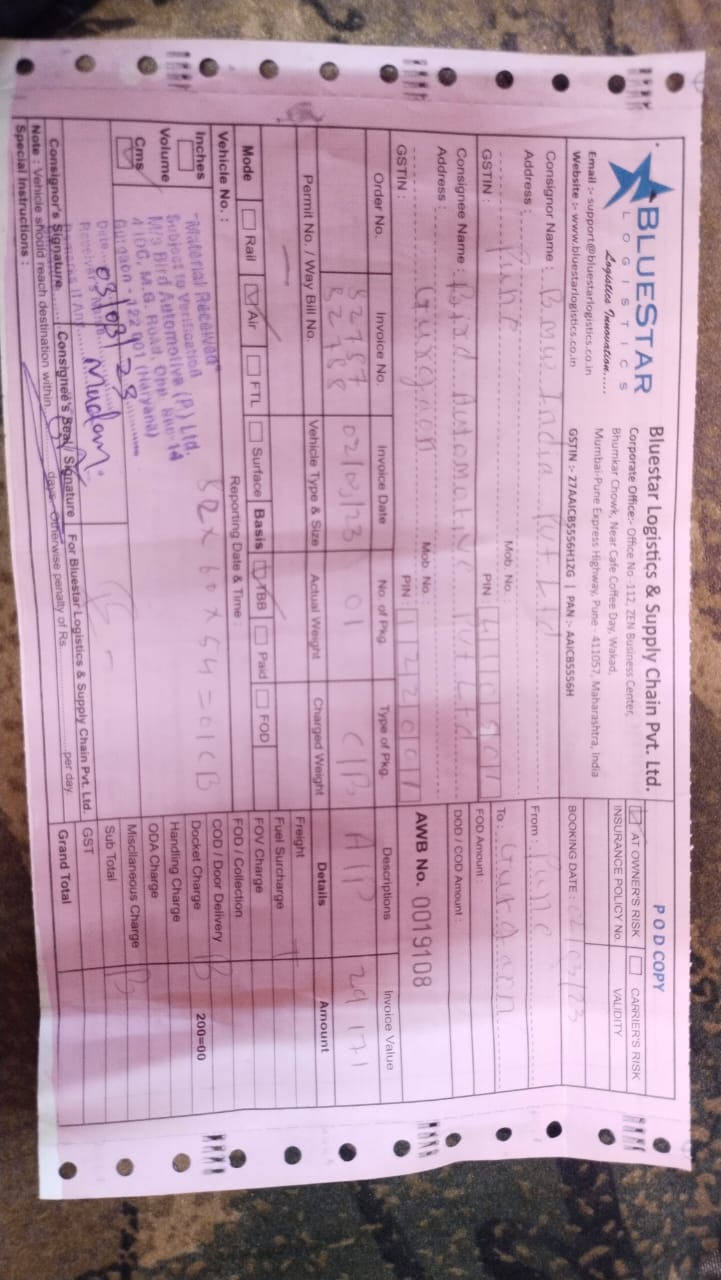 BLUESTAR
LOGISTICS
Logistics Innovation.....
Email :- support@bluestarlogistics.co.in
Website :- www.bluestarlogistics.co.in
Bluestar Logistics & Supply Chain Pvt. Ltd.
Corporate Office:- Office No -112, ZEN Business Center,
Bhumkar Chowk, Near Cafe Coffee Day, Wakad,
Mumbai-Pune Express Highway, Pune - 411057, Maharashtra, India
GSTIN :- 27AAICB5556H1ZG | PAN :- AAICB5556H
POD COPY
AT OWNER'S RISK CARRIER'S RISK
INSURANCE POLICY No. VALIDITY
BOOKING DATE : 02/03/23
Consignor Name : BMW India Pvt Ltd
Address :
Pune Mob. No. :
GSTIN : PIN 410501
From : Pune
To : Gurgaon
FOD Amount :
DOD / COD Amount :
Consignee Name : Bird Automotive Pvt Ltd
Address :
Gurgaon Mob. No. :
GSTIN : PIN 122001
AWB No. 0019108
Order No. Invoice No. Invoice Date No. of Pkg. Type of Pkg. Descriptions Invoice Value
82787 02/03/23 01 C/B A/P 29171
82788
Permit No. / Way Bill No. Vehicle Type & Size Actual Weight Charged Weight Details Amount
Freight
Fuel Surcharge
FOV Charge
FOD / Collection
COD / Door Delivery
Docket Charge 200=00
Handling Charge
ODA Charge
Miscllaneous Charge
Sub Total
GST
Grand Total
Mode Rail Air FTL Surface Basis TBB Paid FOD
Vehicle No. : Reporting Date & Time :
82x60x54=01CB
Inches
Volume
Cms
"Material Received"
Subject to Verification
M/s Bird Automotive (P.) Ltd.
4 IDC, M.G. Road, Opp. Sec-14
Gurgaon - 122 001 (Haryana)
Date 03/03/23
Receiver's Name Mudam
Remarks if Any
Consignor's Signature Consignee's Seal / Signature For Bluestar Logistics & Supply Chain Pvt. Ltd.
Note : Vehicle should reach destination within days. Otherwise penalty of Rs. per day.
Special Instructions :